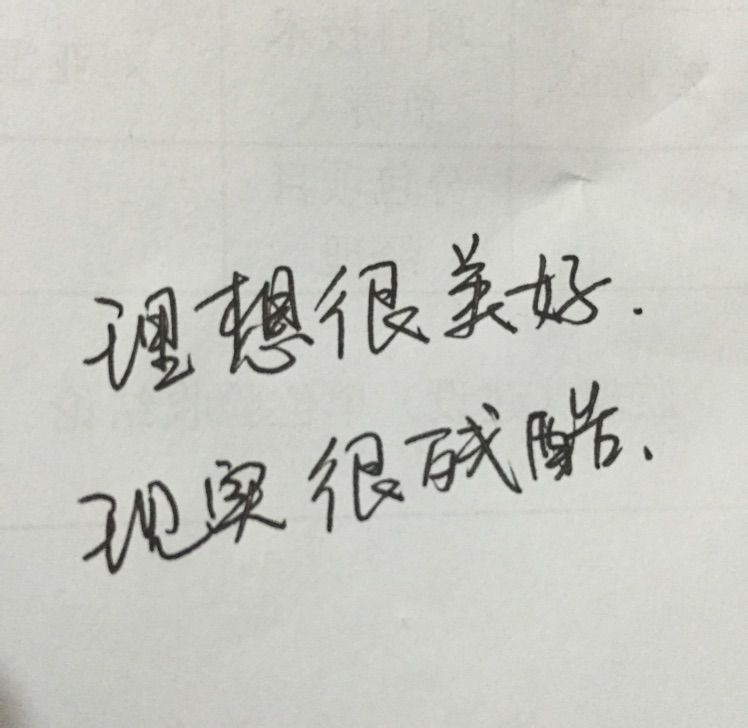 理想很美好.
现实很残酷、